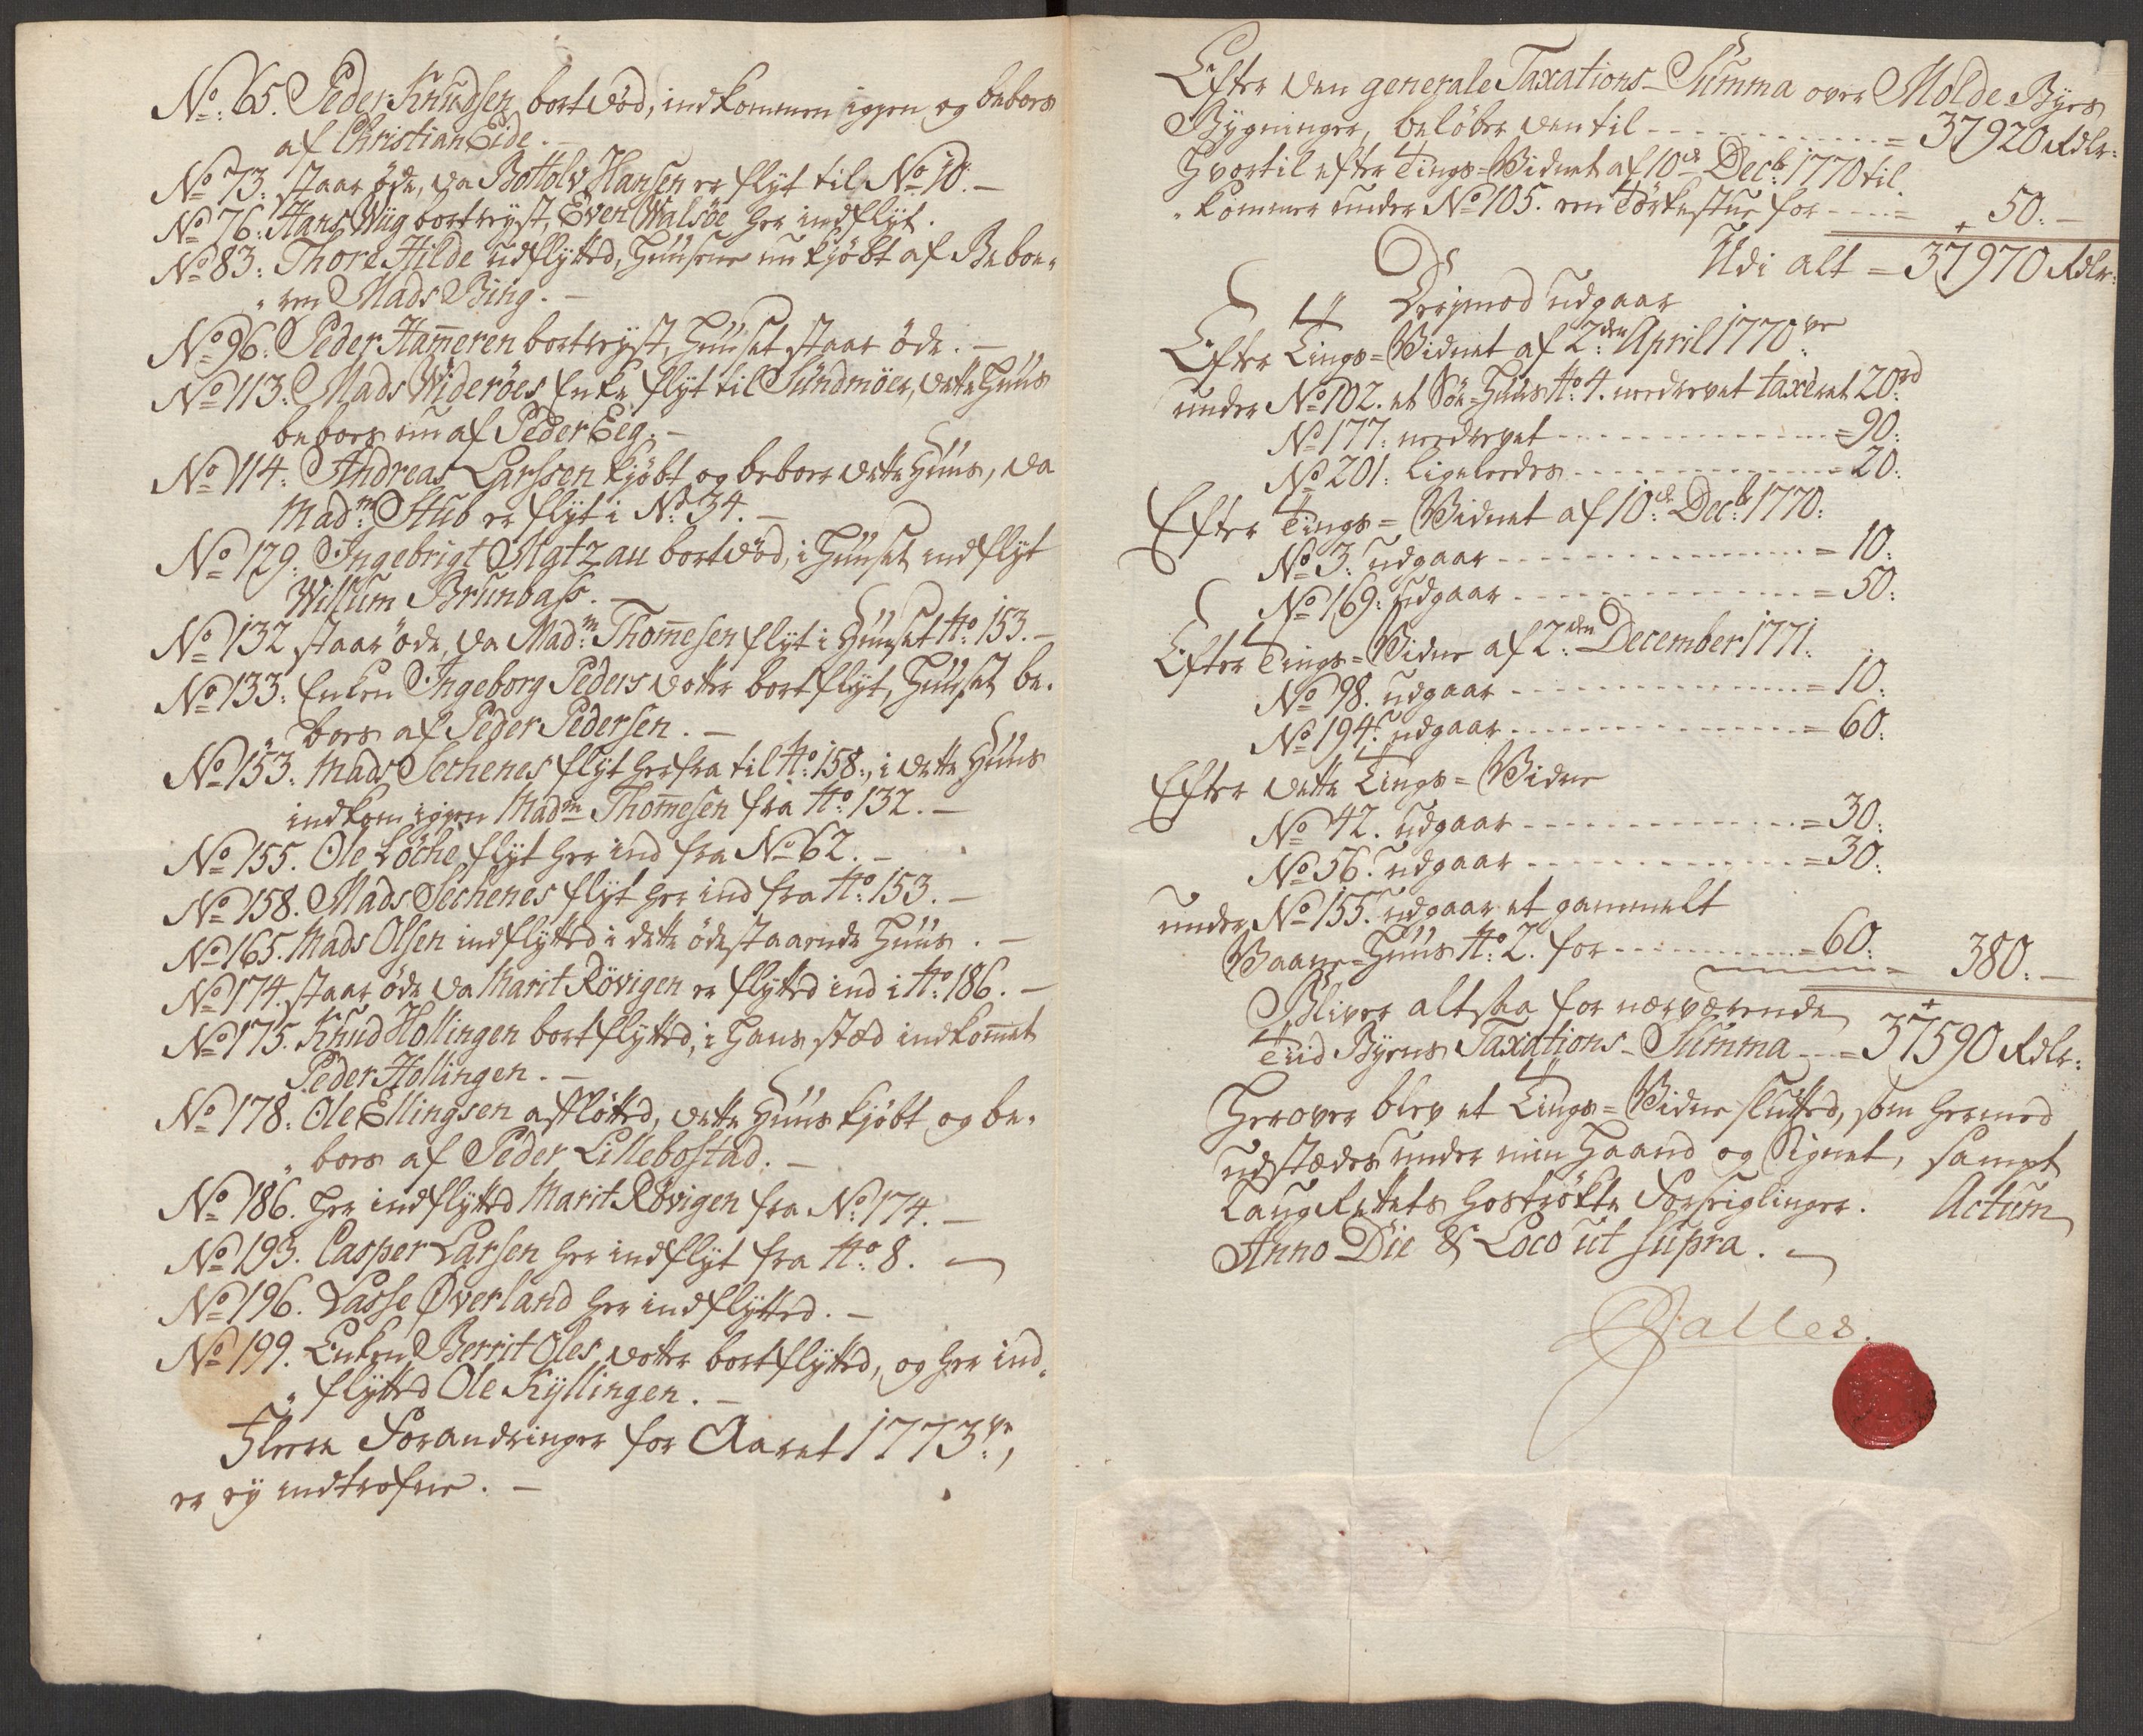 No: 65. Peder Knudsen bortdöd, indkommen igjen og beboes
af Christian Eide. -
No 73. staar öde, da Bottolv Hansen er flyt til No 10. -
No 76. Hans Wiig bortreyst, Even Walsöe her indflyt.
No 83: Thore Hilde udflytted, Huusene nu kjöbt af Beboe-
ren Mads Bing. -
No 96. Peder Ham̄eren bortreyst, Huuset staar öde. -
No 113: Mads Wideröes Enke flyt til Sundmöer, dette Huus
beboes nu af Peder Eeg. -
No 114. Andreas Larssen kjöbt og beboer dette Huus, da
Madm: Stub er flyt i No 34. -
No 129. Ingebrigt Matzau bortdöd, i Huuset indflyt
Willum Brunbass. -
No 132 staar öde, da Madm: Thom̄esen flyt i Huuset No: 153. -
No 133: Enken Ingeborg Peders dotter bortflyt, Huuset be-
boes af Peder Pedersen. -
No 153: Mads Sechenes flyt herfra til No: 158., i dette Huus
indkom igjen Madm Thom̄esen fra No: 132. -
No 155. Ole Löche flyt her ind fra No 62. -
No 158. Mads Sechenes flyt her ind fra No: 153. -
No 165. Mads Olsen indflytted i dette ödestaaende Huus. -
No 174. staar öde da Marit Rövigen er flytted ind i No: 186. -
No 175. Knud Hollingen bortflytted, i Hans stæd indkom̄et
Peder Hollingen. -
No 178. Ole Ellingsen afflötted, dette Huus kjöbt og be-
boes af Peder Lillebostad. -
No 186. her indflytted Marit Rövigen fra No: 174. -
No 193. Casper Larsen her indflyt fra No: 8. -
No 196. Lasse Øverland her indflytted. -
No 199. Enken Berrit Oles dotter bortflytted, og her ind-
flytted Ole Kyllingen. -
Fleere Forandringer for Aaret 1773ve:,
er ey indtrofne. -
Efter den generale Taxations-Summa over Molde Byes
Bygninger, belöber den til - - - = 37920 Rdlr:
Hvortil efter Tings-Vidnet af 10de Decbr: 1770 til
kommer under No 105. een Törkestue for - - - = 50: -
Udi alt = 37970 Rdlr:
Derimod udgaar
Efter Tings-Vidnet af 2den April 1770ve
under No 102. et Söe-Huus No: 4. nedrevet taxeret 20rd
No 177: nedrevet - - - = 90:
No 201: ligeleedes - - - = 20:
Efter Tings-Vidnet af 10de: Decbr: 1770:
No 3. udgaar - - - = 10:
No 169: udgaar - - - = 50:
Efter Tings-Vidne af 2den: December 1771:
No 98. udgaar - - - = 10:
No 194. udgaar - - - = 60:
Efter dette Tings-Vidne
No 42. udgaar - - - = 30:
No 56. udgaar - - - = 30:
under No 155. udgaar et gammelt
Vaane-Huus No: 2. for - - - = 60:
= 380: -
Bliver altsaa for nærværende
Tiid Byens Taxations-Summa - - = 37590 Rdlr:
Herover blev et Tings-Vidne slutted, som hermed
udstædes under min Haand og Signet, sampt
Laug Rettets hoströkte Forseiglinger. Actum
Anno Die & Loco ut supra. -